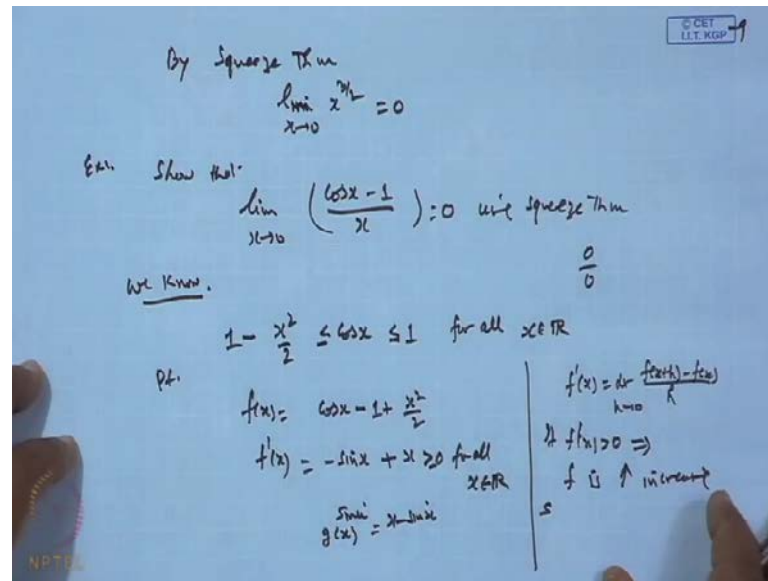 © CET
I.I.T. KGP
By Squeeze Thm
lim x^{3/2} = 0
x→0
Ex. Show that
lim ( (cosx - 1) / x ) = 0 use squeeze Thm
x→0
0/0
We Know.
1 - x²/2 ≤ cosx ≤ 1 for all x∈R
Pf.
f(x) = cosx - 1 + x²/2
f'(x) = -sinx + x ≥ 0 for all x∈R
since
g(x) = x-sinx
f'(x) = lim h→0 (f(x+h) - f(x)) / h
If f'(x) > 0 ⇒
f is ↑ increase
s
NPTEL